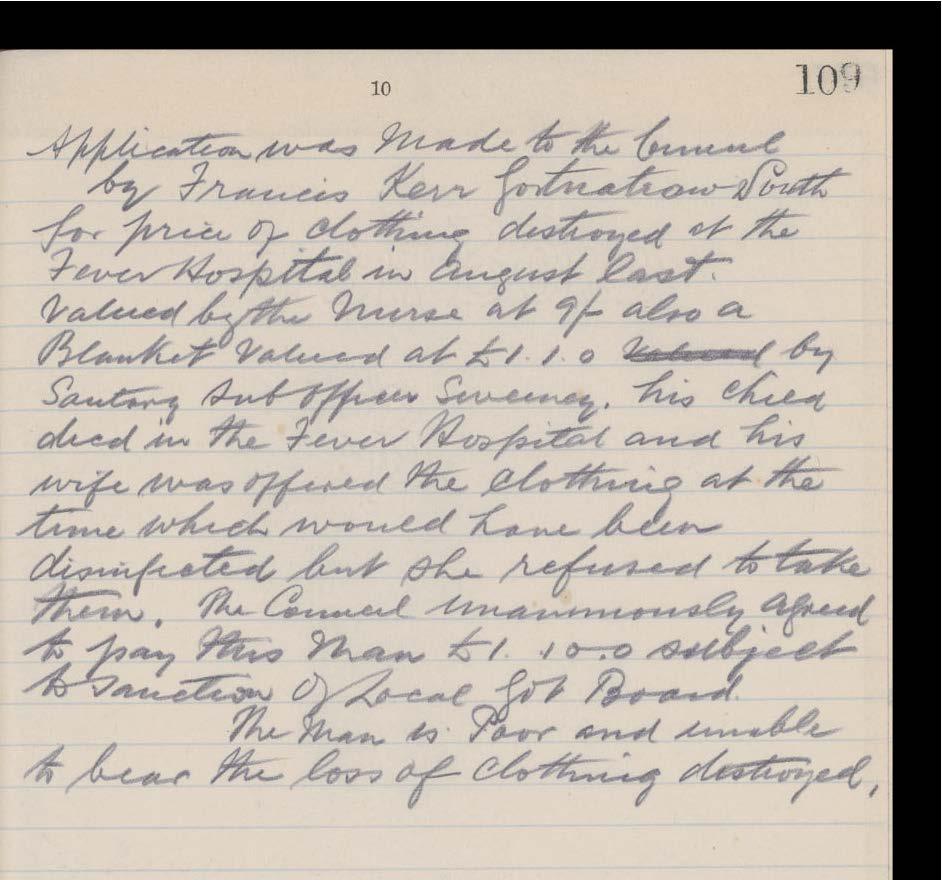 10
109
Application was Made to the Council
by Francis Kerr Gortnatraw South
for price of clothing destroyed at the
Fever Hospital in August last.
Valued by the Nurse at 9/- also a
Blanket Valued at £1.1.0 by
Santary Sub Officer Sweeney. his child
died in the Fever Hospital and his
wife was offered the Clothing at the
time which would have been
disinfected but she refused to take
them. The Council unanimously Agreed
to pay this Man £1.10.0 subject
to Sanction Of Local Govt Board.
The Man is Poor and unable
to bear the loss of clothing destroyed,